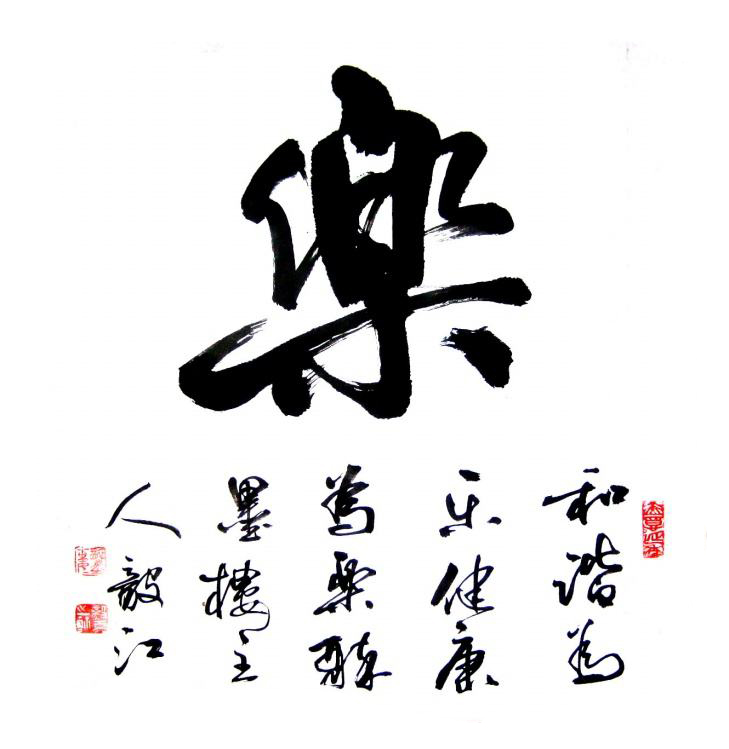 樂
和谐为
乐健康
為樂醉
墨樓主
人毅江